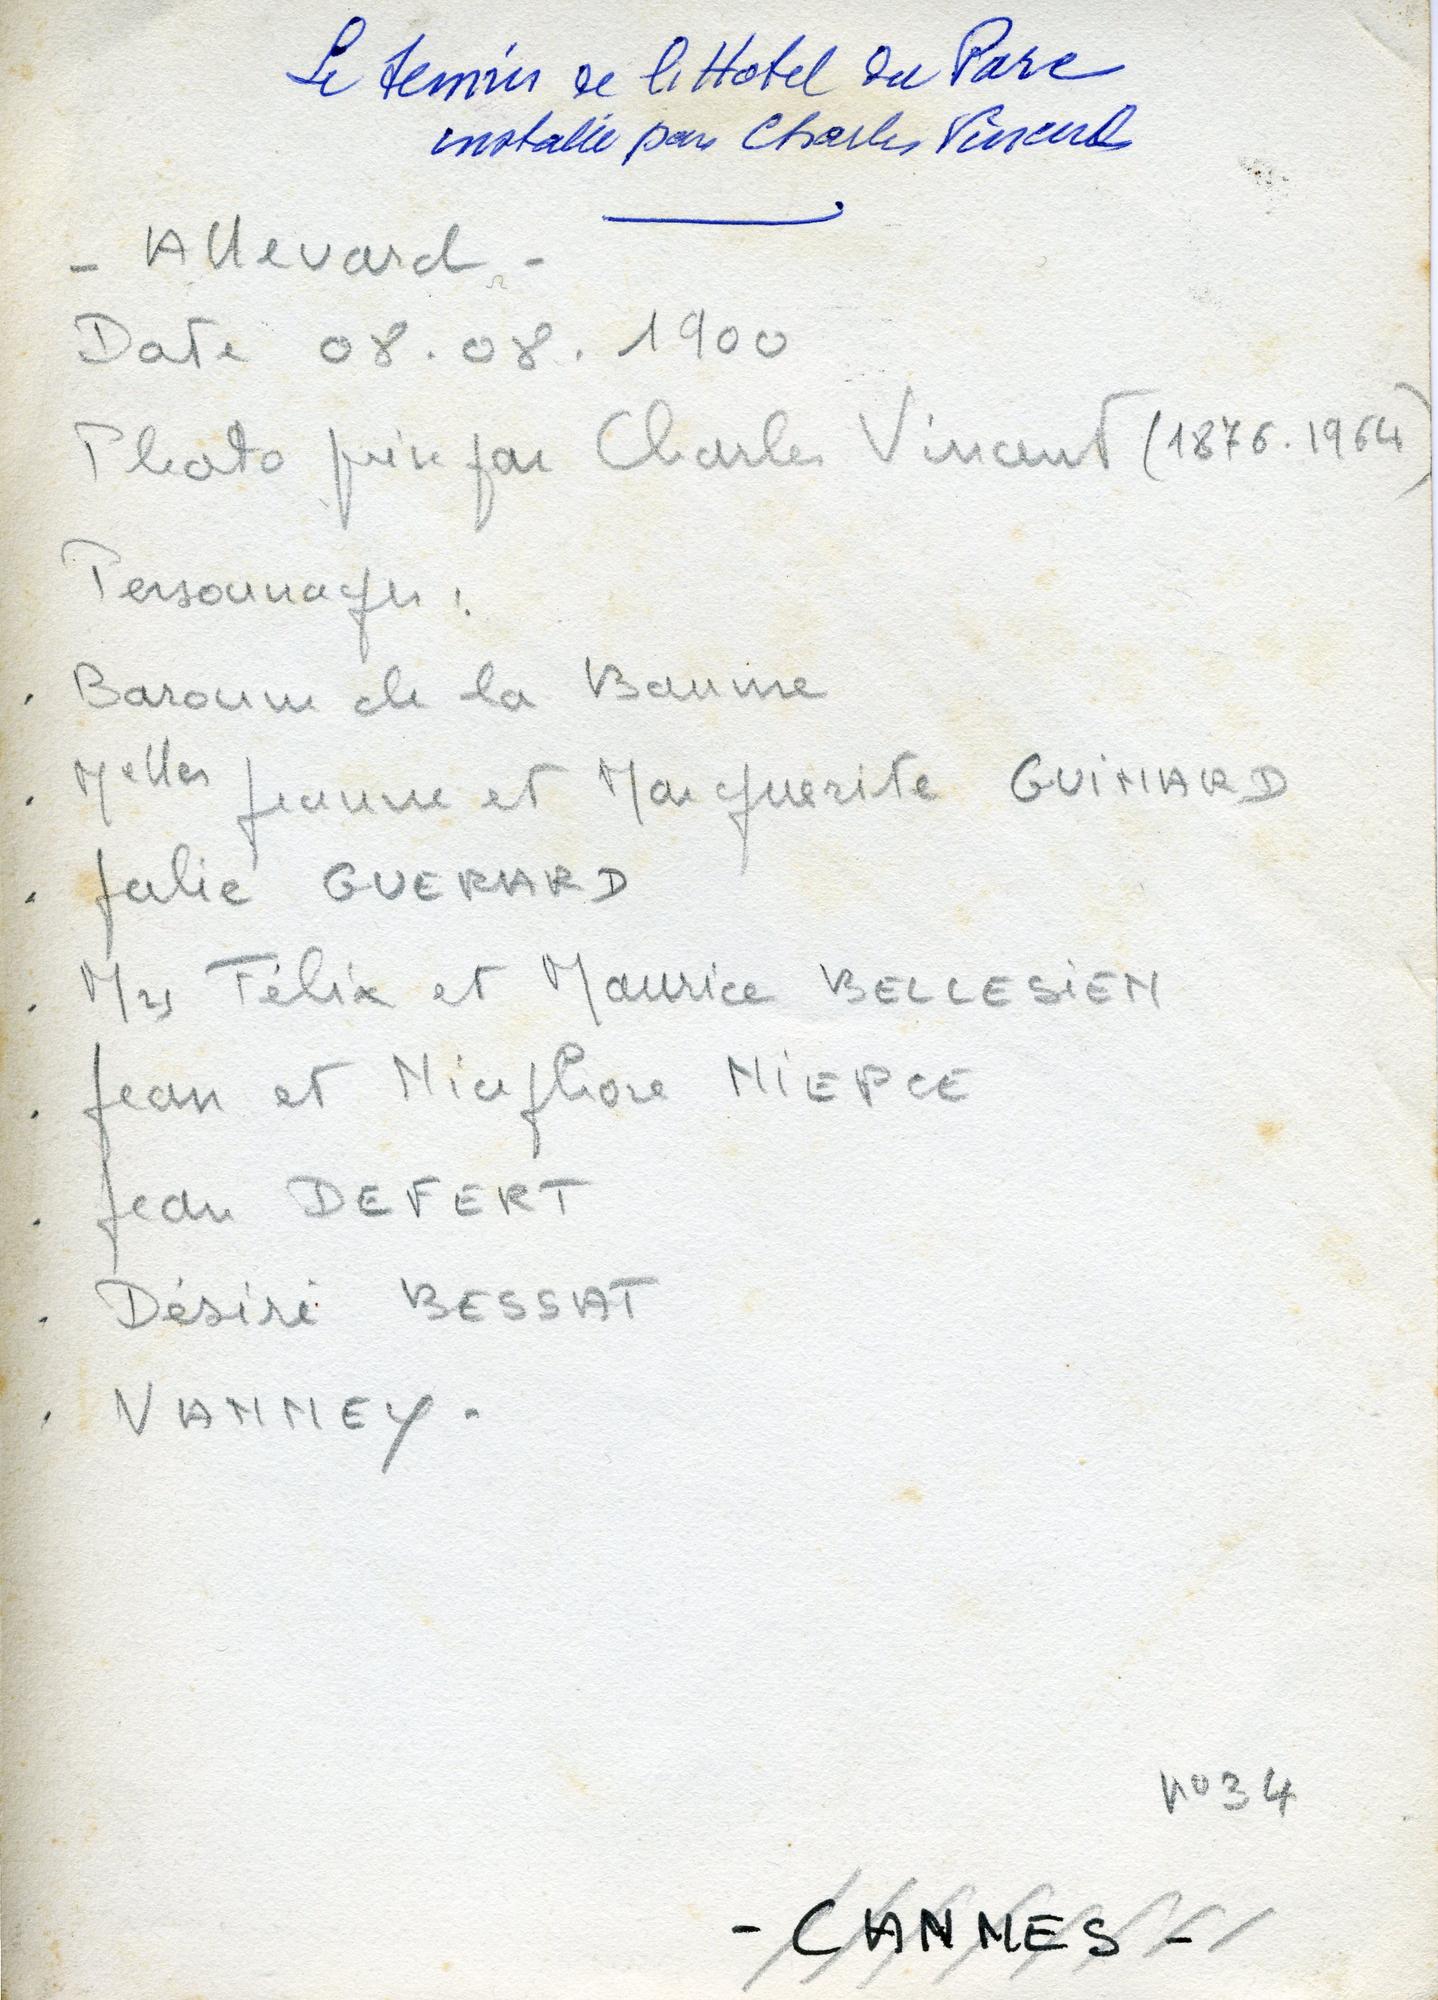 Le tennis de l'Hotel du Parc
installé par Charles Vincent
- Allevard -
Date 08.08.1900
Photo prise par Charles Vincent (1876.1964)
Personnages :
. Baronne de la Baume
. Melles Jeanne et Marguerite GUIMARD
. Julie GUERARD
. Mrs Félix et Maurice BELLESIEN
. Jean et Nicephore NIEPCE
. Jean DEFERT
. Désiré BESSAT
. VANNEY.
n°34
- CANNES -